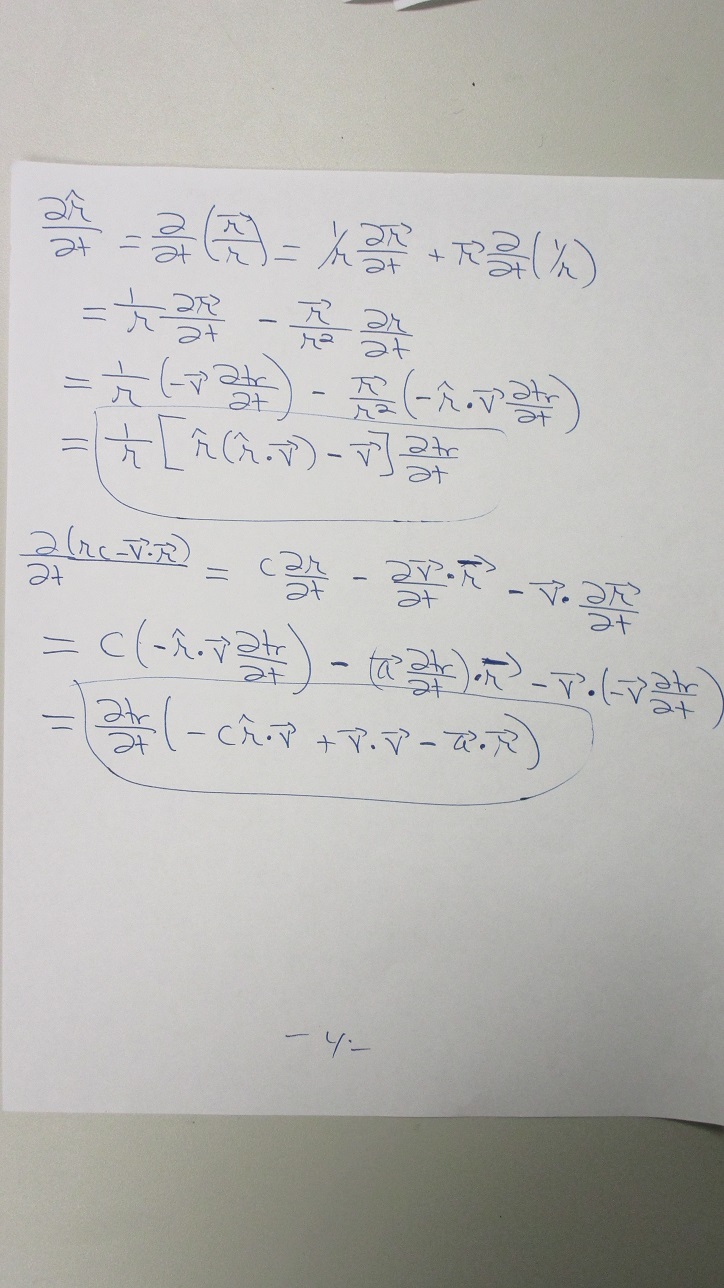 ∂r̂/∂t = ∂/∂t (r⃗/r) = 1/r ∂r⃗/∂t + r⃗ ∂/∂t (1/r)
= 1/r ∂r⃗/∂t - r⃗/r² ∂r/∂t
= 1/r (-v⃗ ∂tr/∂t) - r⃗/r² (-r̂·v⃗ ∂tr/∂t)
= 1/r [r̂(r̂·v⃗) - v⃗] ∂tr/∂t
∂(rc-v⃗·r⃗)/∂t = c ∂r/∂t - ∂v⃗/∂t·r⃗ - v⃗·∂r⃗/∂t
= c(-r̂·v⃗ ∂tr/∂t) - (a⃗ ∂tr/∂t)·r⃗ - v⃗·(-v⃗ ∂tr/∂t)
= ∂tr/∂t (-cr̂·v⃗ + v⃗·v⃗ - a⃗·r⃗)